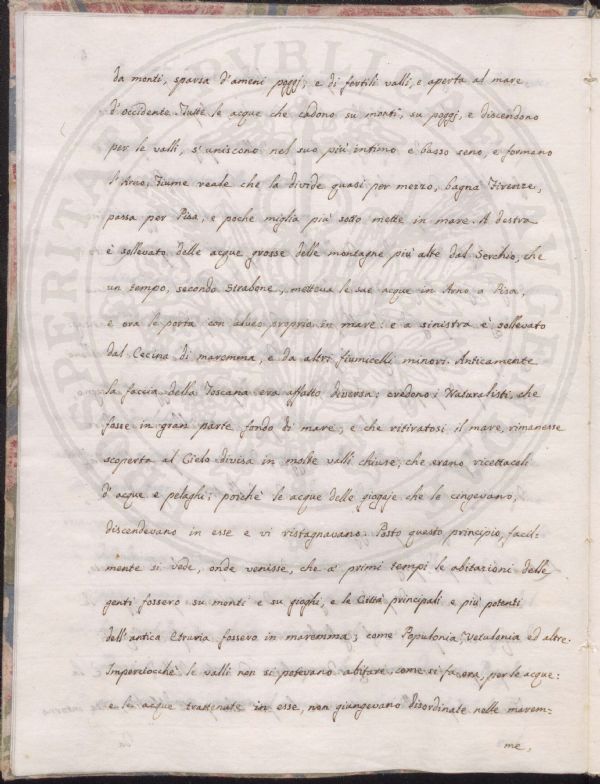 da monti, sparsa d'ameni poggj, e di fertili valli, e aperta al mare
d'occidente. Tutte le acque che cadono su monti, su poggj, e discendono
per le valli, s'uniscono nel suo più intimo e basso seno, e formano
l'Arno, Fiume reale che la divide quasi per mezzo, bagna Firenze,
passa per Pisa, e poche miglia più sotto mette in mare. A destra
è sollevato delle acque grosse delle montagne più alte dal Serchio, che
un tempo, secondo Strabone, metteva le sue acque in Arno a Pisa,
e ora le porta con alveo proprio in mare: e a sinistra è sollevato
dal Cecina di maremma, e da altri fiumicelli minori. Anticamente
la faccia della Toscana era affatto diversa; credono i Naturalisti, che
fosse in gran parte fondo di mare, e che ritiratosi il mare, rimanesse
scoperta al Cielo divisa in molte valli chiuse, che erano ricettacoli
d'acque e pelaghi: poichè le acque delle giogaje che le cingevano,
discendevano in esse e vi ristagnavano. Posto questo principio, facil=
mente si vede, onde venisse, che a' primi tempi le abitazioni delle
genti fossero su monti e su gioghi, e le Città principali e più potenti
dell'antica Etruria fossero in maremma; come Populonia, Vetulonia ed altre.
Imperciocchè le valli non si potevano abitare, come si fa ora, per le acque:
e le acque trattenute in esse, non giungevano disordinate nelle marem=
me,